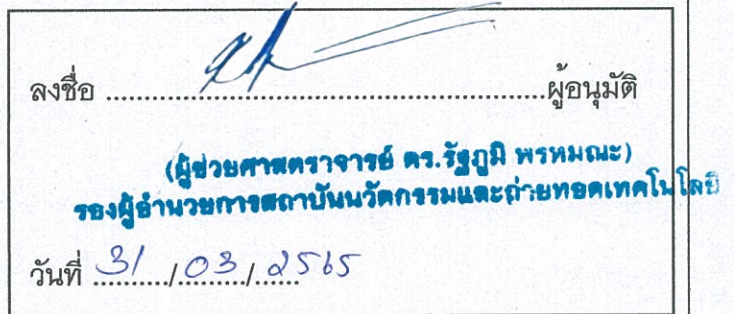 ลงชื่อ ............................................................ผู้อนุมัติ
(ผู้ช่วยศาสตราจารย์ ดร.รัฐภูมิ พรหมณะ)
รองผู้อำนวยการสถาบันนวัตกรรมและถ่ายทอดเทคโนโลยี
วันที่ 31/03/2565